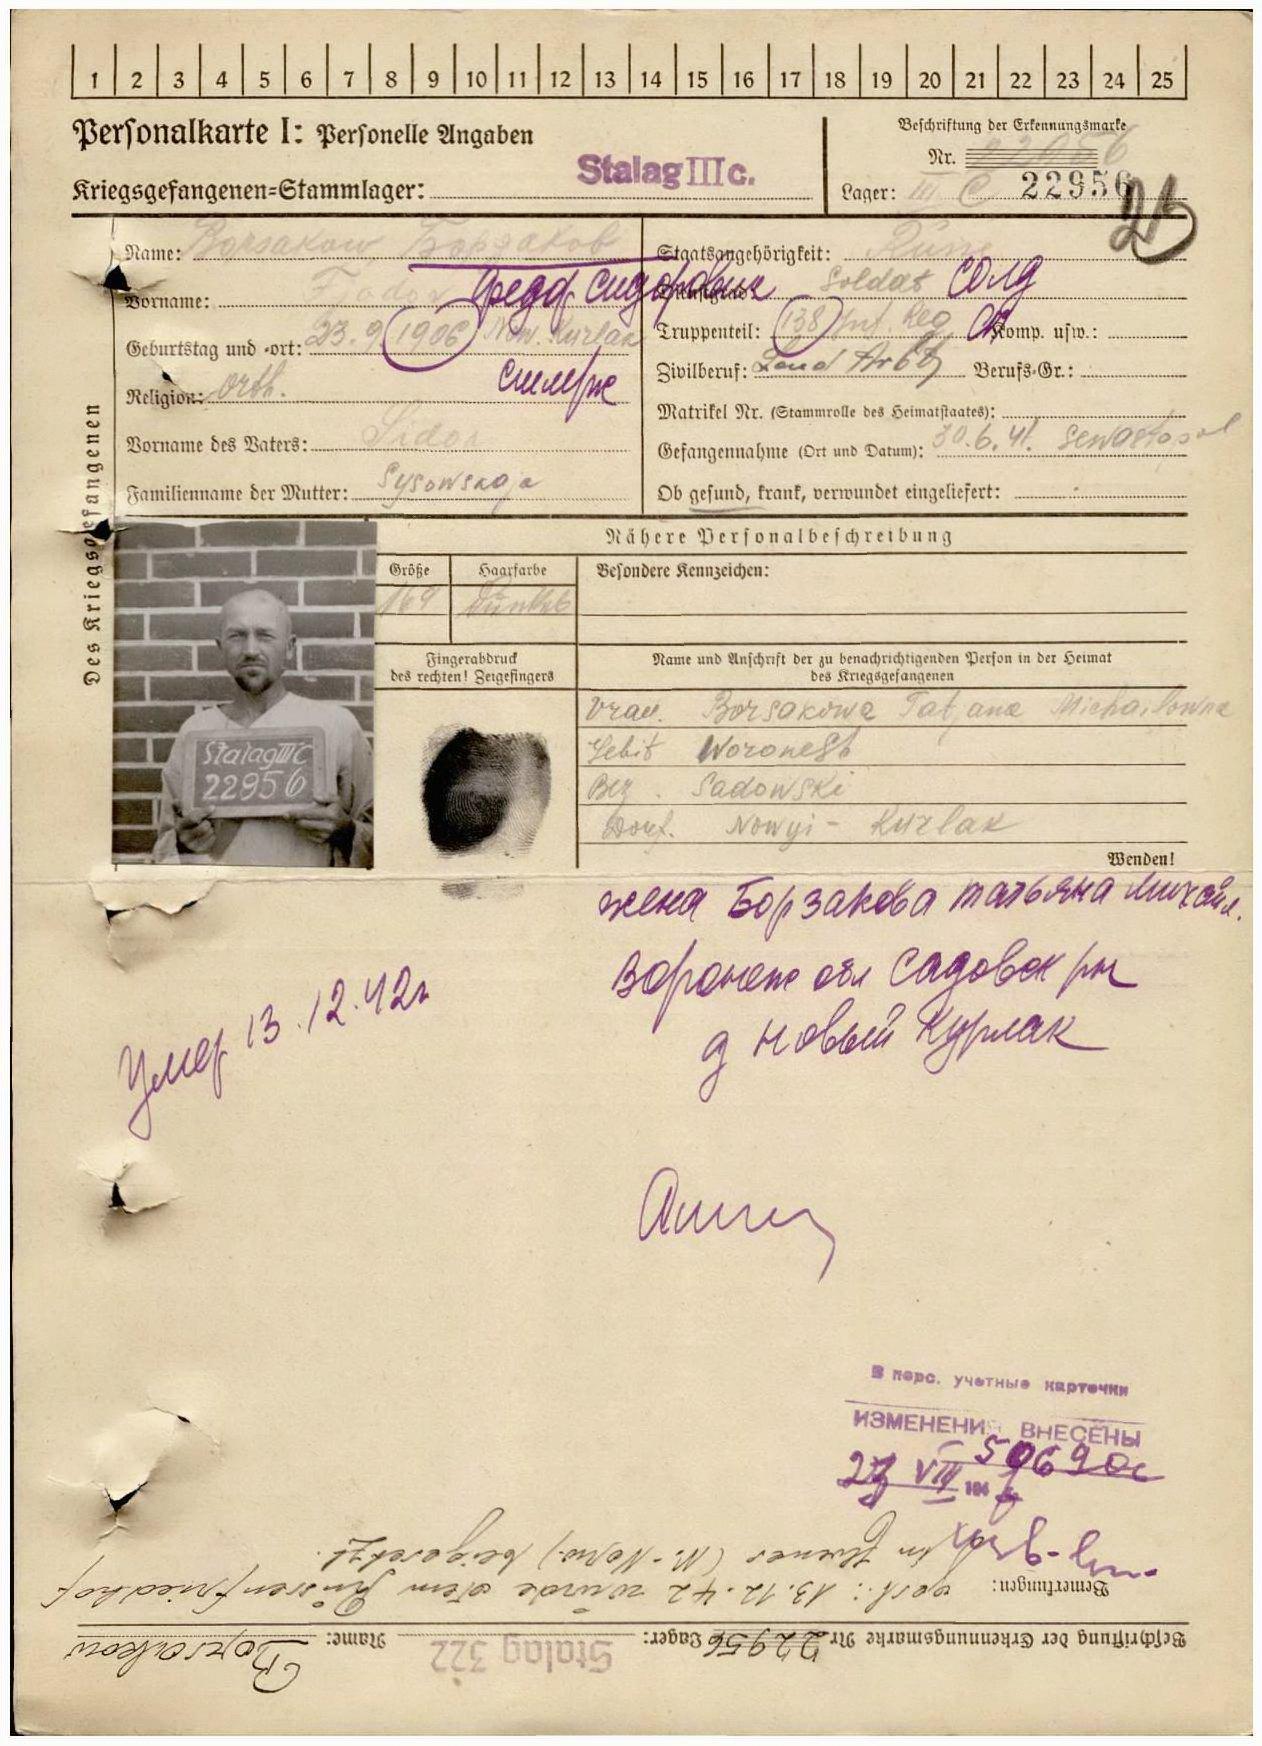 1 2 3 4 5 6 7 8 9 10 11 12 13 14 15 16 17 18 19 20 21 22 23 24 25
Personalkarte I: Personelle Angaben
Beschriftung der Erkennungsmarke
Nr. 22956
Kriegsgefangenen=Stammlager: Stalag III c.
Lager: III C 22956
Des Kriegsgefangenen
Name: Borsakow Борзаков
Vorname: Fodor Федор Сидорович
Geburtstag und -ort: 23.9.1906 Now. Kurlak
Religion: orth.
Vorname des Vaters: Sidor
Familienname der Mutter: Sysowskaja
Staatsangehörigkeit: Russe
Dienstgrad: Soldat солд
Truppenteil: 138 Inf. Reg. Komp. usw.:
Zivilberuf: Land Arbtr Berufs-Gr.:
Matrikel Nr. (Stammrolle des Heimatstaates):
Gefangennahme (Ort und Datum): 30.6.41. Sewastopol
Ob gesund, krank, verwundet eingeliefert:
Nähere Personalbeschreibung
Größe Haarfarbe
Besondere Kennzeichen:
169 Dunkel
Stalag III C
22956
Fingerabdruck
des rechten! Zeigefingers
Name und Anschrift der zu benachrichtigenden Person in der Heimat
des Kriegsgefangenen
Frau. Borsakowa Tatjana Michailowna
Gebit Woronesh
Bez. Sadowski
Dorf. Nowyi - Kurlak
Wenden!
жена Борзакова Татьяна Михайл.
Воронеж обл Садовск рн
д Новый Курлак
Умер 13.12.42г
В перс. учетные карточки
ИЗМЕНЕНИЯ ВНЕСЕНЫ
27 VIII 194
50690с
Bemerkungen: gest.: 13.12.42 wurde dem Russenfriedhof
in (N.-Norw.) beigesetzt.
Beschriftung der Erkennungsmarke Nr. 22956 Lager: Stalag 322 Name: Borsakow